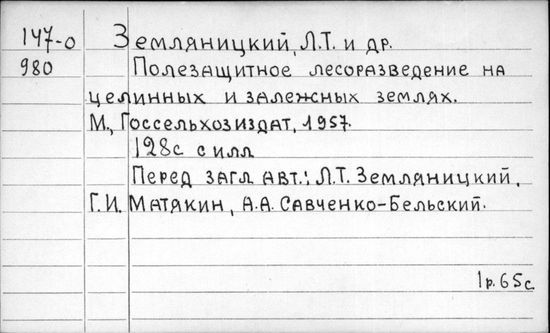 147-о Земляницкий, Л.Т. и др.
980 Полезащитное лесоразведение на
целинных и залежных землях.
М., Госсельхозиздат, 1957.
128с с илл
Перед загл авт.: Л.Т. Земляницкий,
Г.И. Матякин, А.А. Савченко-Бельский.
1р.65с.